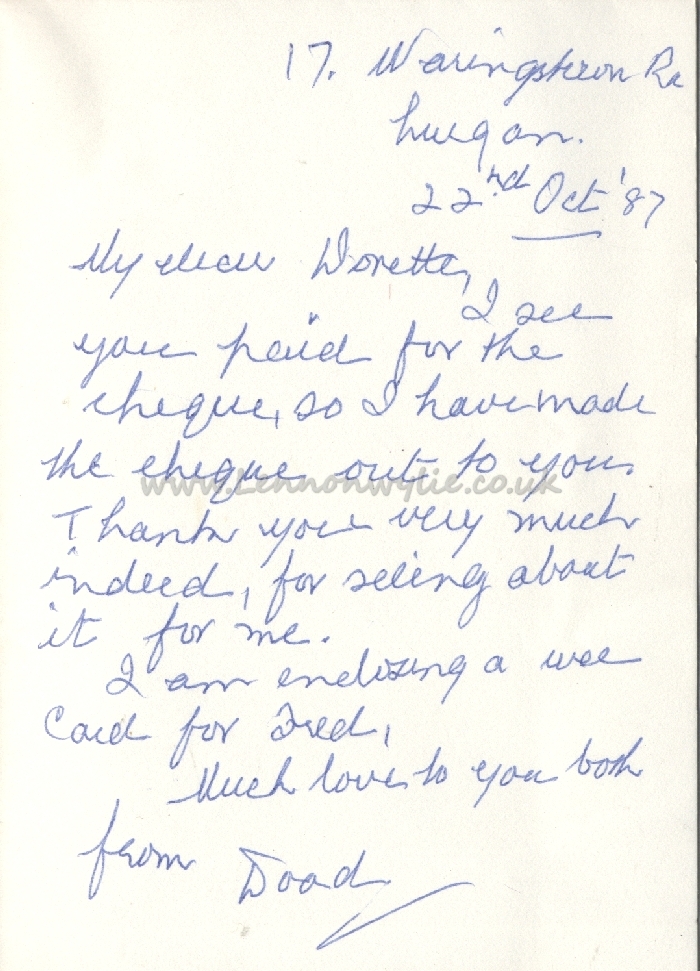 17. Waringstown Rd
Lurgan.
22nd Oct '87
My dear Doretta,
I see
you paid for the
cheque, so I have made
the cheque out to you.
www.Lennonwylie.co.uk
Thank you very much
indeed, for seeing about
it for me.
I am enclosing a wee
Card for Fred,
Much love to you both
from Dood